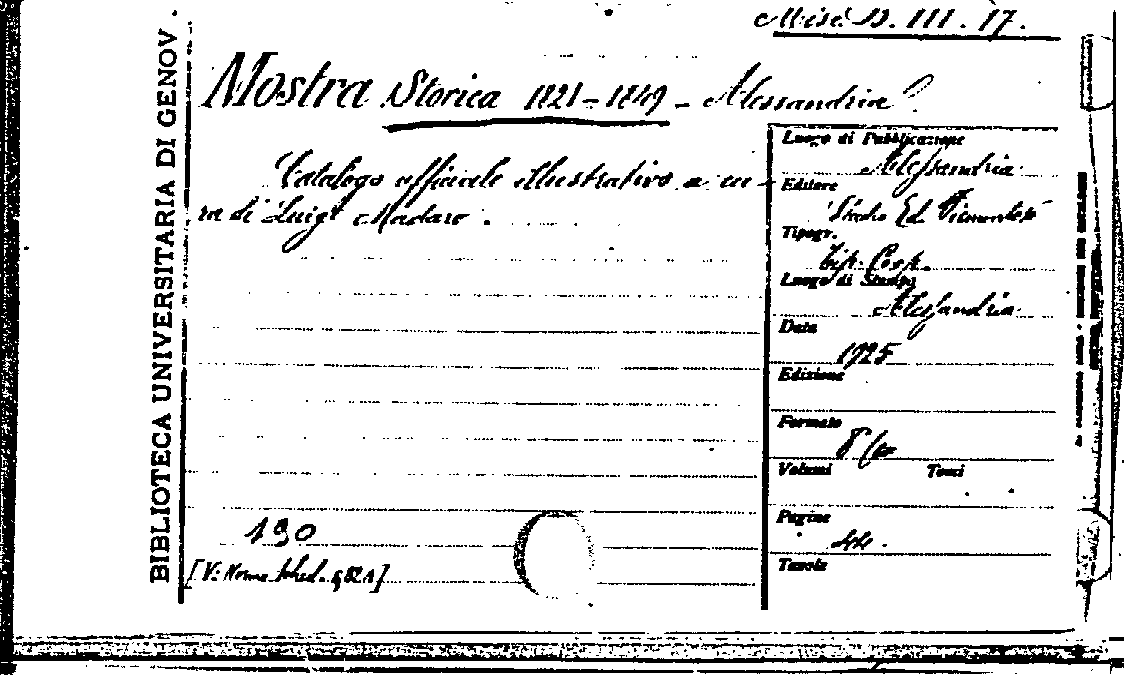 BIBLIOTECA UNIVERSITARIA DI GENOV.
Misc. D. III. 17.
Mostra Storica 1821-1849 - Alessandria
Catalogo officiale illustrativo a cu-
ra di Luigi Madaro.
Luogo di Pubblicazione
Alessandria
Editore
Ed. Piemontese
Tipogr.
Tip. Coop.
Luogo di Stampa
Alessandria
Data
1925
Edizione
Formato
8°
Volumi Tomi
Pagine
44.
Tavole
190
[V: Norme sched. 9,82.1]